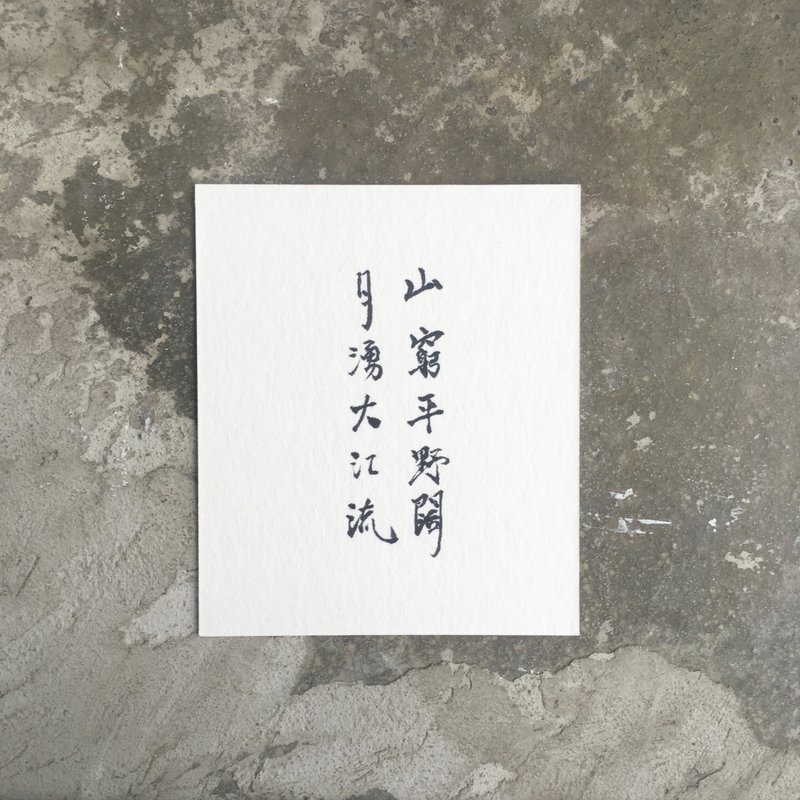 山窮平野闊
月湧大江流